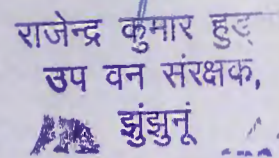 राजेन्द्र कुमार हुड्
उप वन संरक्षक,
झुंझुनूं